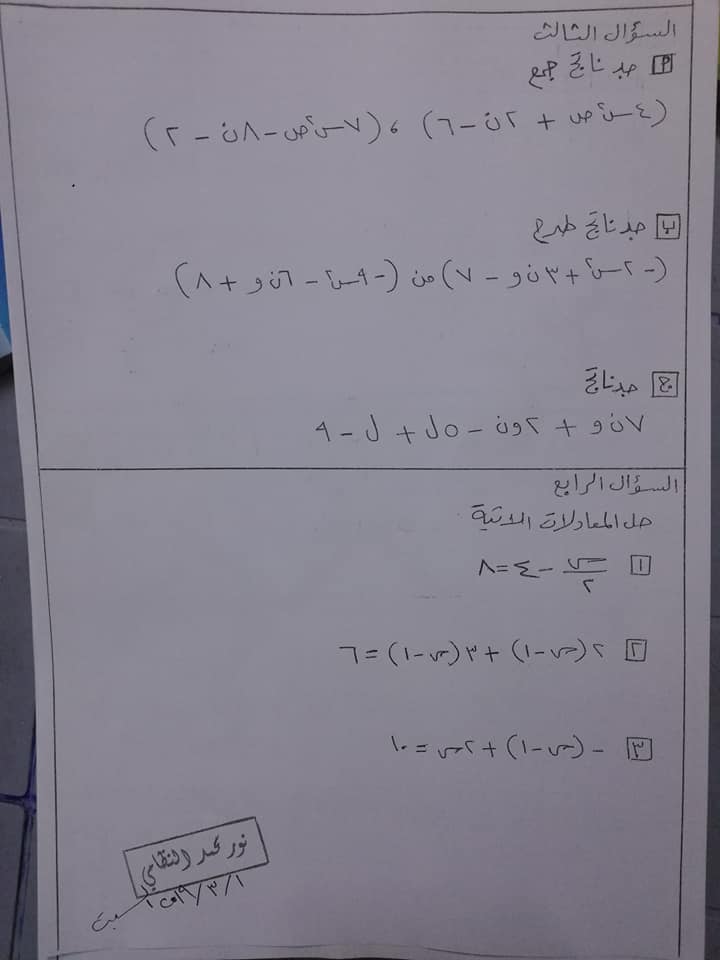 السؤال الثالث
أ جد ناتج جمع
(٤س٢ص + ٢ن - ٦) ، (٧س٢ص - ٨ن - ٢)
ب جد ناتج طرح
(-٢س٢ + ٣ن و - ٧) من (-٩س٢ - ٦ن و + ٨)
ج جد ناتج
٧ن و + ٢ون - ٥ل + ل - ٩
السؤال الرابع
حل المعادلات الاتية
١ س/٢ - ٤ = ٨
٢ ٢(س-١) + ٣(س-١) = ٦
٣ - (س-١) + ٢س = ١٠
نور محمد النظامي